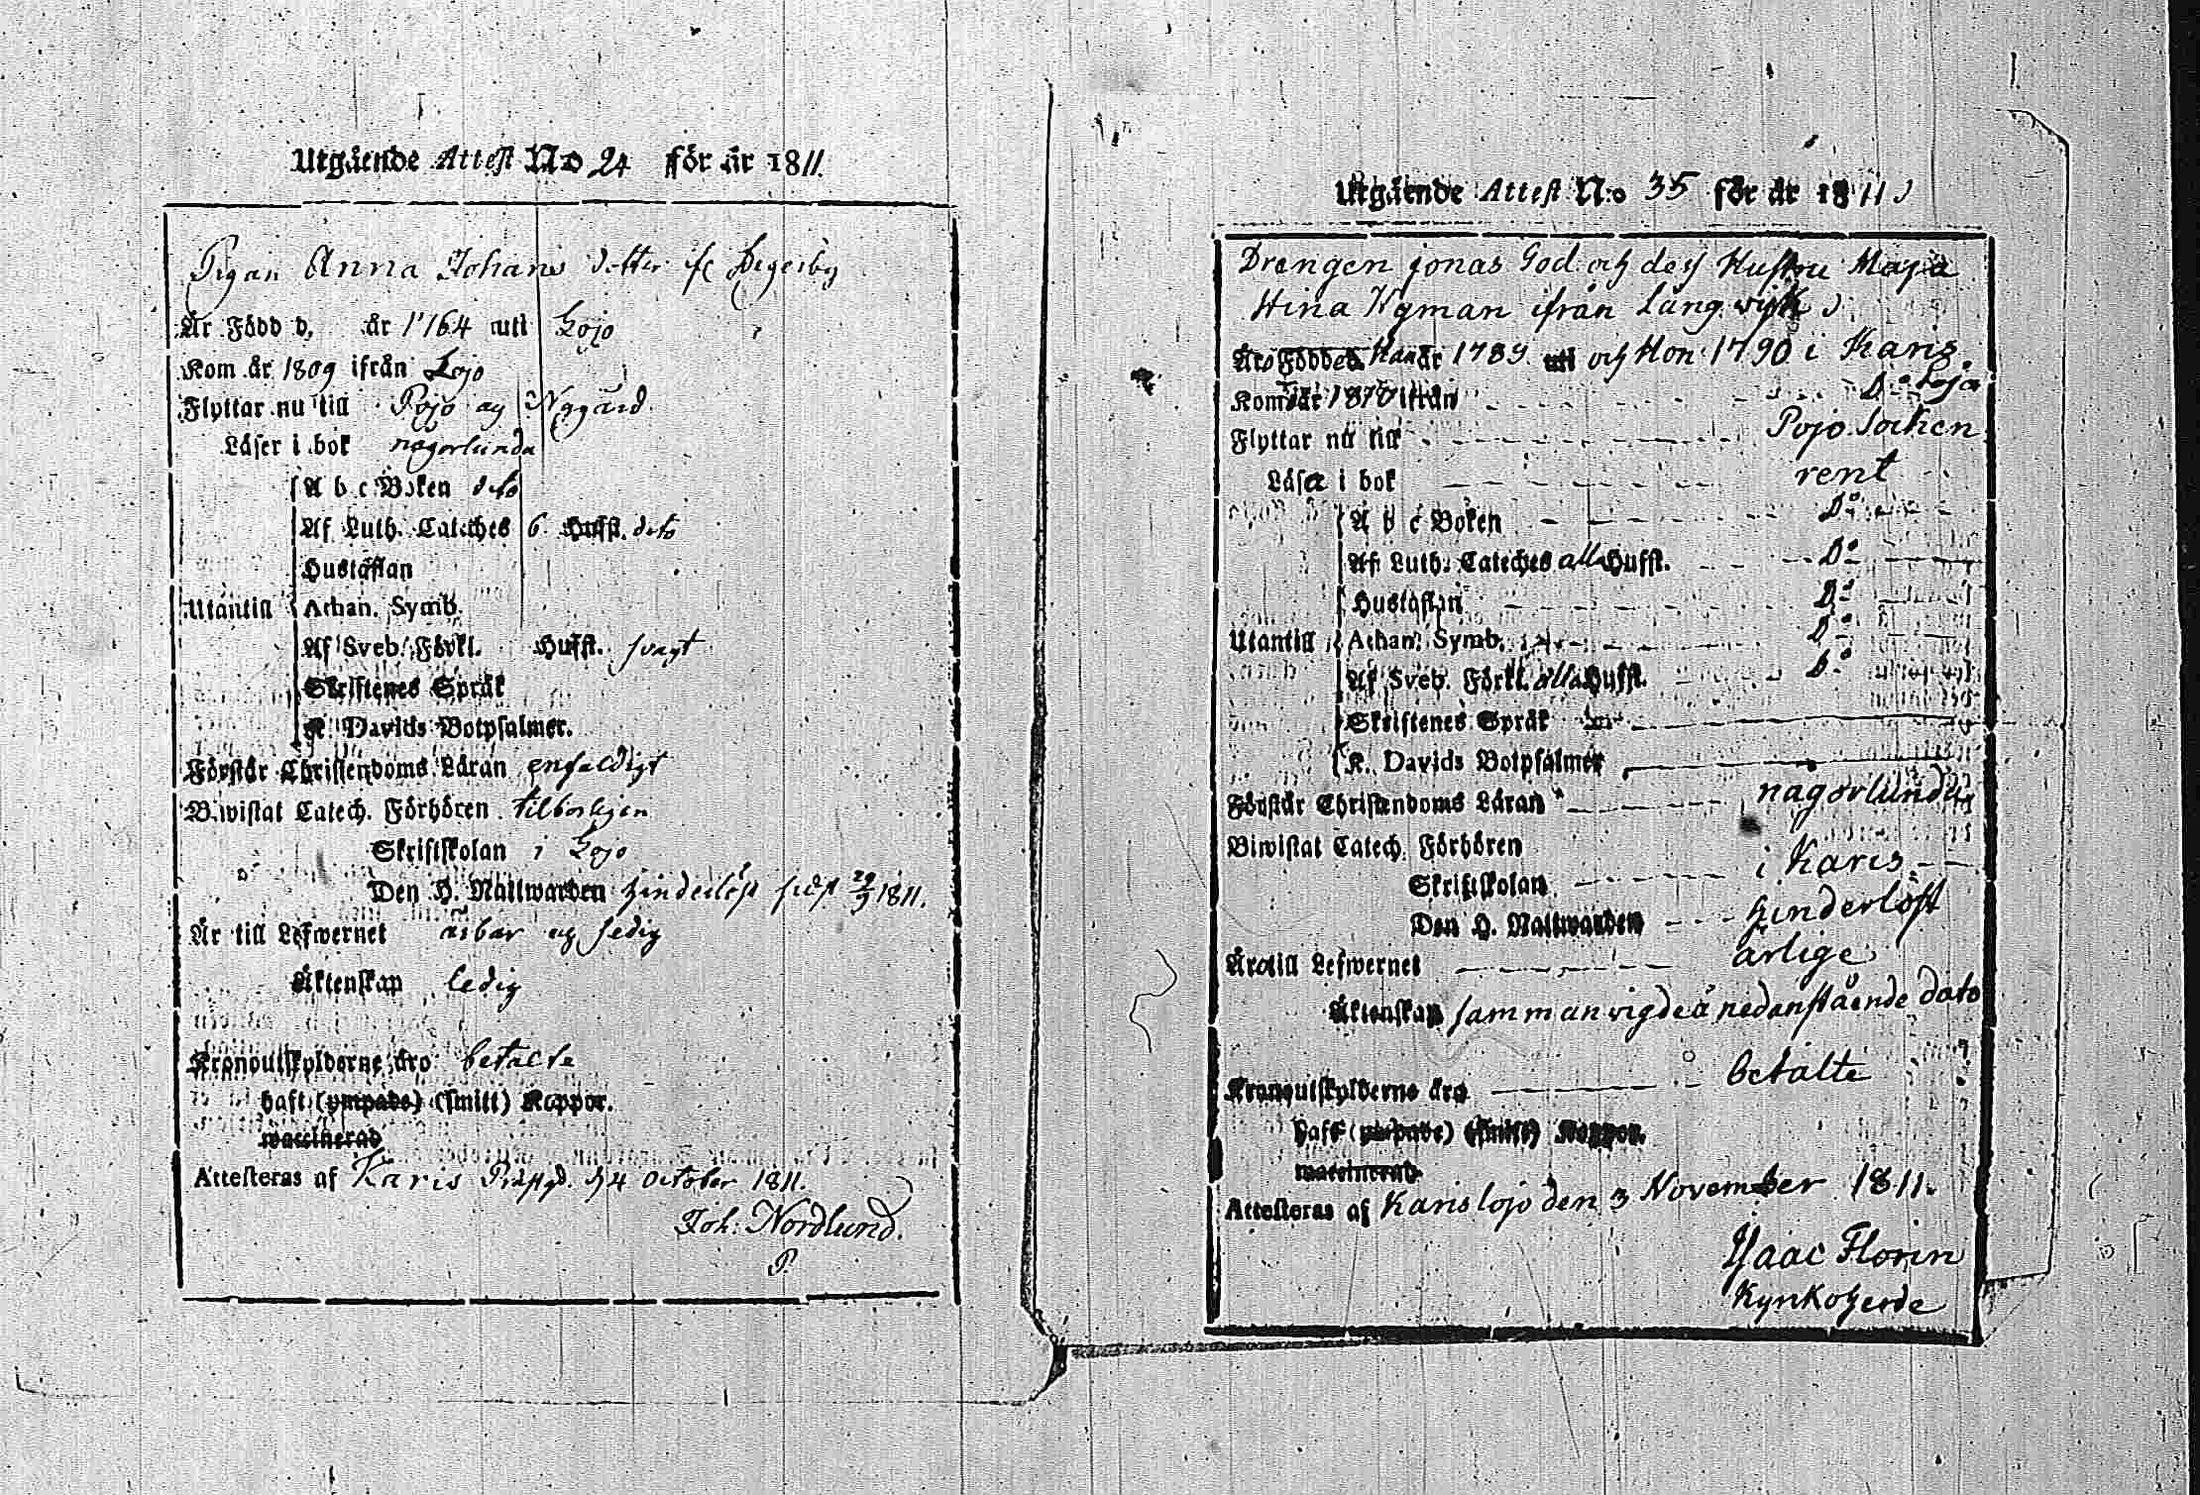 Utgående Attest No 24 för år 1811.
Pigan Anna Johans dotter fr Degerby
Är Född d, år 1764 uti Lojo
Kom år 1809 ifrån Lojo
Flyttar nu till Pojo ag Nygård
Läser i bok någorlunda
A b c Boken dito
Af Luth. Catéches 6. Hufst. dito
Hustaflan
Utantill Athan. Symb.
Af Sveb. Förkl. Hufst. svagt
Skriftenes Språk
K. Davids Botpsalmer.
Förstår Christendoms Läran enfaldigt
Biwistat Catech. Förhören tilbörligen
Skriftskolan i Lojo
Den H. Nattwarden hinderlöst sidst 29/9 1811.
Är till Lefwernet ärbar og sedig
Äktenskap ledig
Kronoutskylderne äro betalte
haft (ympade) (smitt) Koppor.
waccinerad
Attesteras af Karis Prästgd. d 4 October 1811.
Joh: Nordlund.
P.
Utgående Attest N:o 35 för år 1811
Drengen Jonas God och dess Hustru Maja
Stina Nyman ifrån Långwijk
Äro Födde Han år 1789 uti och Hon 1790 i Karis
Kom år 1810 ifrån Do Lojo
Flyttar nu till Pojo Socken
Läsa i bok rent
A b c Boken Do
Af Luth. Catéches alla Hufst. Do
Hustaflan Do
Utantill Athan. Symb. Do
Af Sveb. Förkl. alla Hufst. Do
Skriftenes Språk
K. Davids Botpsalmer
Förstår Christendoms Läran någorlunda
Biwistat Catech. Förhören
Skriftskolan i Karis
Den H. Nattwarden hinderlöst
Äro till Lefwernet ärlige
Äktenskap samman vigde å nedanstående dato
Kronoutskylderne äro betalte
haft (ympade) (smitt) Koppor.
waccinerad
Attesteras af Karislojo den 3 November 1811.
Isaac Florin
Kyrkoherde